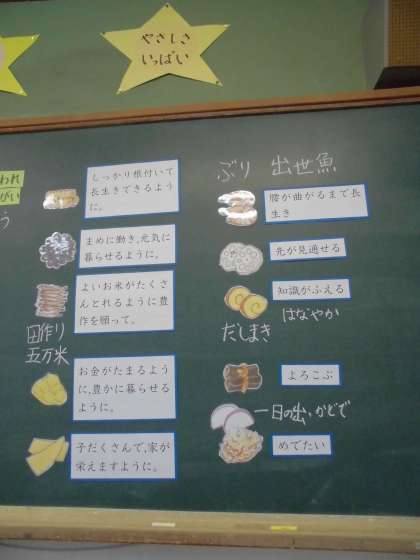 やさしさ
いっぱい
われ
がい
う
しっかり根付いて
長生きできるよう
に。
まめに働き、元気に
暮らせるように。
よいお米がたくさ
んとれるように豊
作を願って。
田作り
五万米
お金がたまるよう
に、豊かに暮らせる
ように。
子だくさんで、家が
栄えますように。
ぶり 出世魚
腰が曲がるまで長
生き
先が見通せる
知識がふえる
はなやか
だしまき
よろこぶ
一日の出、かどで
めでたい